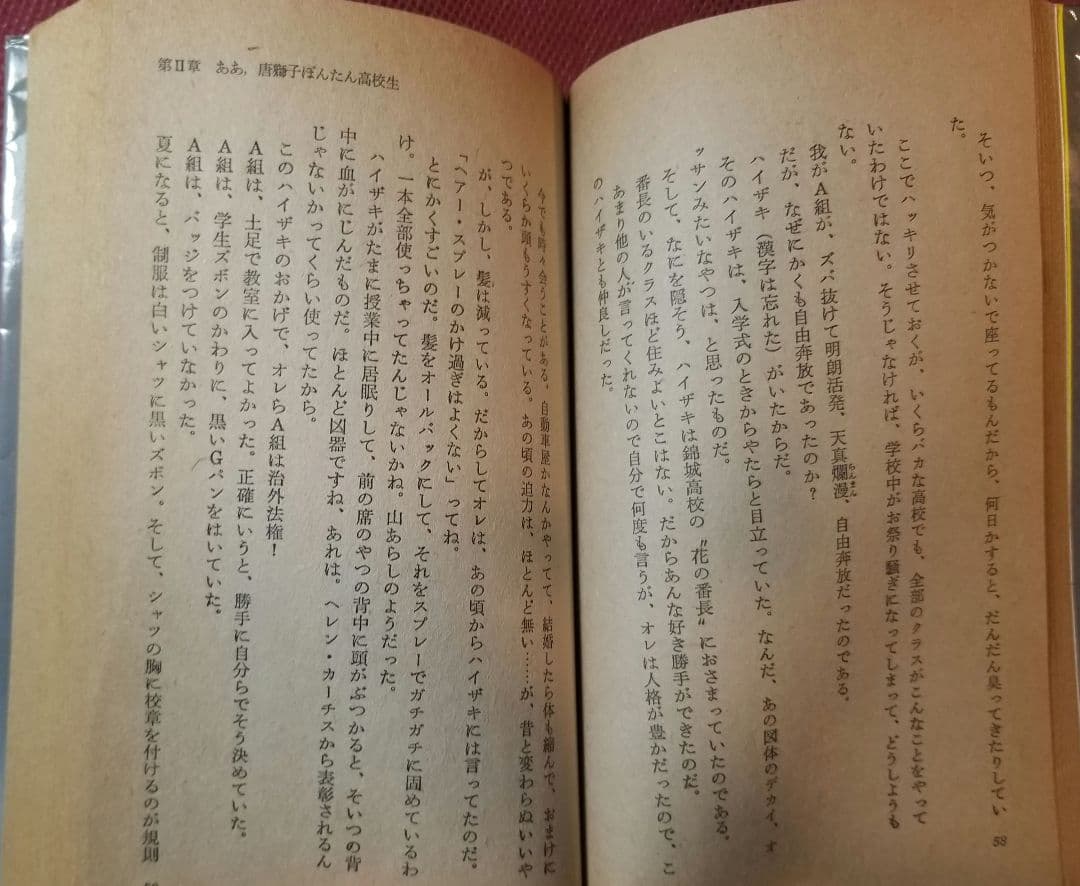 そいつ、気がつかないで座ってるもんだから、何日かすると、だんだん臭ってきたりしてい
た。
ここでハッキリさせておくが、いくらバカな高校でも、全部のクラスがこんなことをやって
いたわけではない。そうじゃなければ、学校中がお祭り騒ぎになってしまって、どうしようも
ない。
我がA組が、ズバ抜けて明朗活発、天真爛漫、自由奔放だったのである。
らんまん
だが、なぜにかくも自由奔放であったのか？
ハイザキ（漢字は忘れた）がいたからだ。
そのハイザキは、入学式のときからやたらと目立っていた。なんだ、あの図体のデカイ、オ
ッサンみたいなやつは、と思ったものだ。
そして、なにを隠そう、ハイザキは錦城高校の〝花の番長〟におさまっていたのである。
番長のいるクラスほど住みよいとこはない。だからあんな好き勝手ができたのだ。
あまり他の人が言ってくれないので自分で何度も言うが、オレは人格が豊かだったので、こ
のハイザキとも仲良しだった。
58
第Ⅱ章 ああ，唐獅子ぼんたん高校生
今でも時々会うことがある。自動車屋かなんかやってて、結婚したら体も縮んで、おまけに
いくらか頭もうすくなっている。あの頃の迫力は、ほとんど無い……が、昔と変わらぬいいや
つである。
が、しかし、髪は減っている。だからしてオレは、あの頃からハイザキには言ってたのだ。
「ヘアー・スプレーのかけ過ぎはよくない」ってね。
とにかくすごいのだ。髪をオールバックにして、それをスプレーでガチガチに固めているわ
け。一本全部使っちゃってたんじゃないかね。山あらしのようだった。
ハイザキがたまに授業中に居眠りして、前の席のやつの背中に頭がぶつかると、そいつの背
中に血がにじんだものだ。ほとんど凶器ですね、あれは。ヘレン・カーチスから表彰されるん
じゃないかってくらい使ってたから。
このハイザキのおかげで、オレらA組は治外法権！
A組は、土足で教室に入ってよかった。正確にいうと、勝手に自分らでそう決めていた。
A組は、学生ズボンのかわりに、黒いGパンをはいていた。
A組は、バッジをつけていなかった。
夏になると、制服は白いシャツに黒いズボン。そして、シャツの胸に校章を付けるのが規則